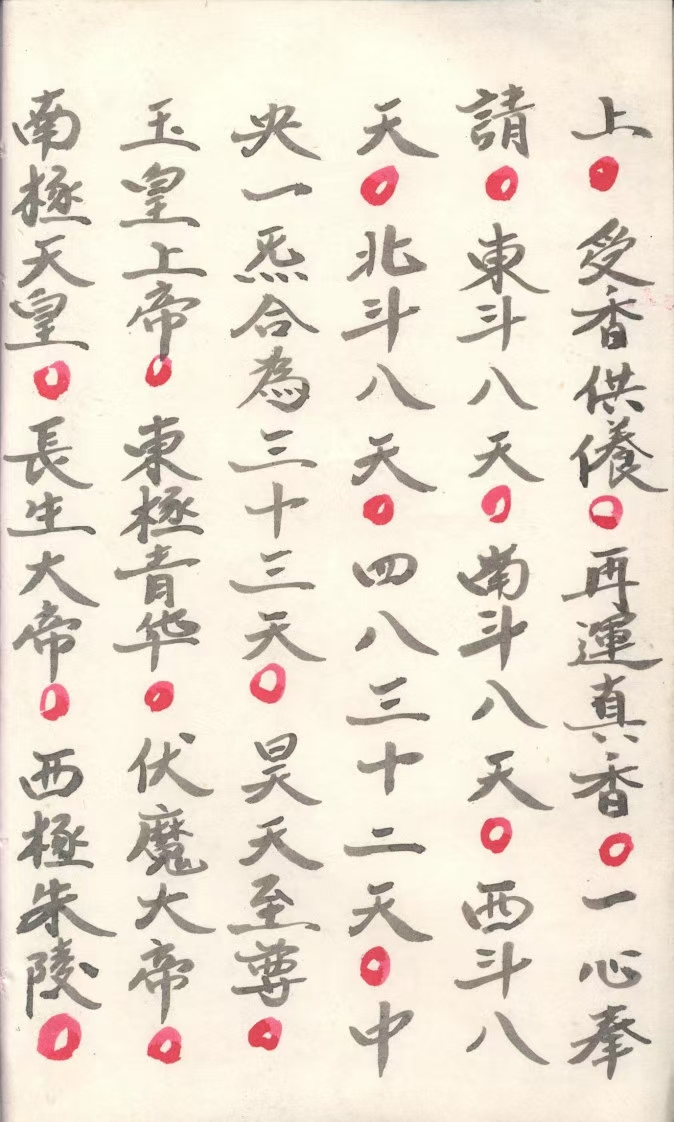 上○受香供儀○再運真香○一心奉
請○東斗八天○南斗八天○西斗八
天○北斗八天○四八三十二天○中
央一炁合為三十三天○昊天至尊○
玉皇上帝○東極青华○伏魔大帝○
南極天皇○長生大帝○西極朱陵○